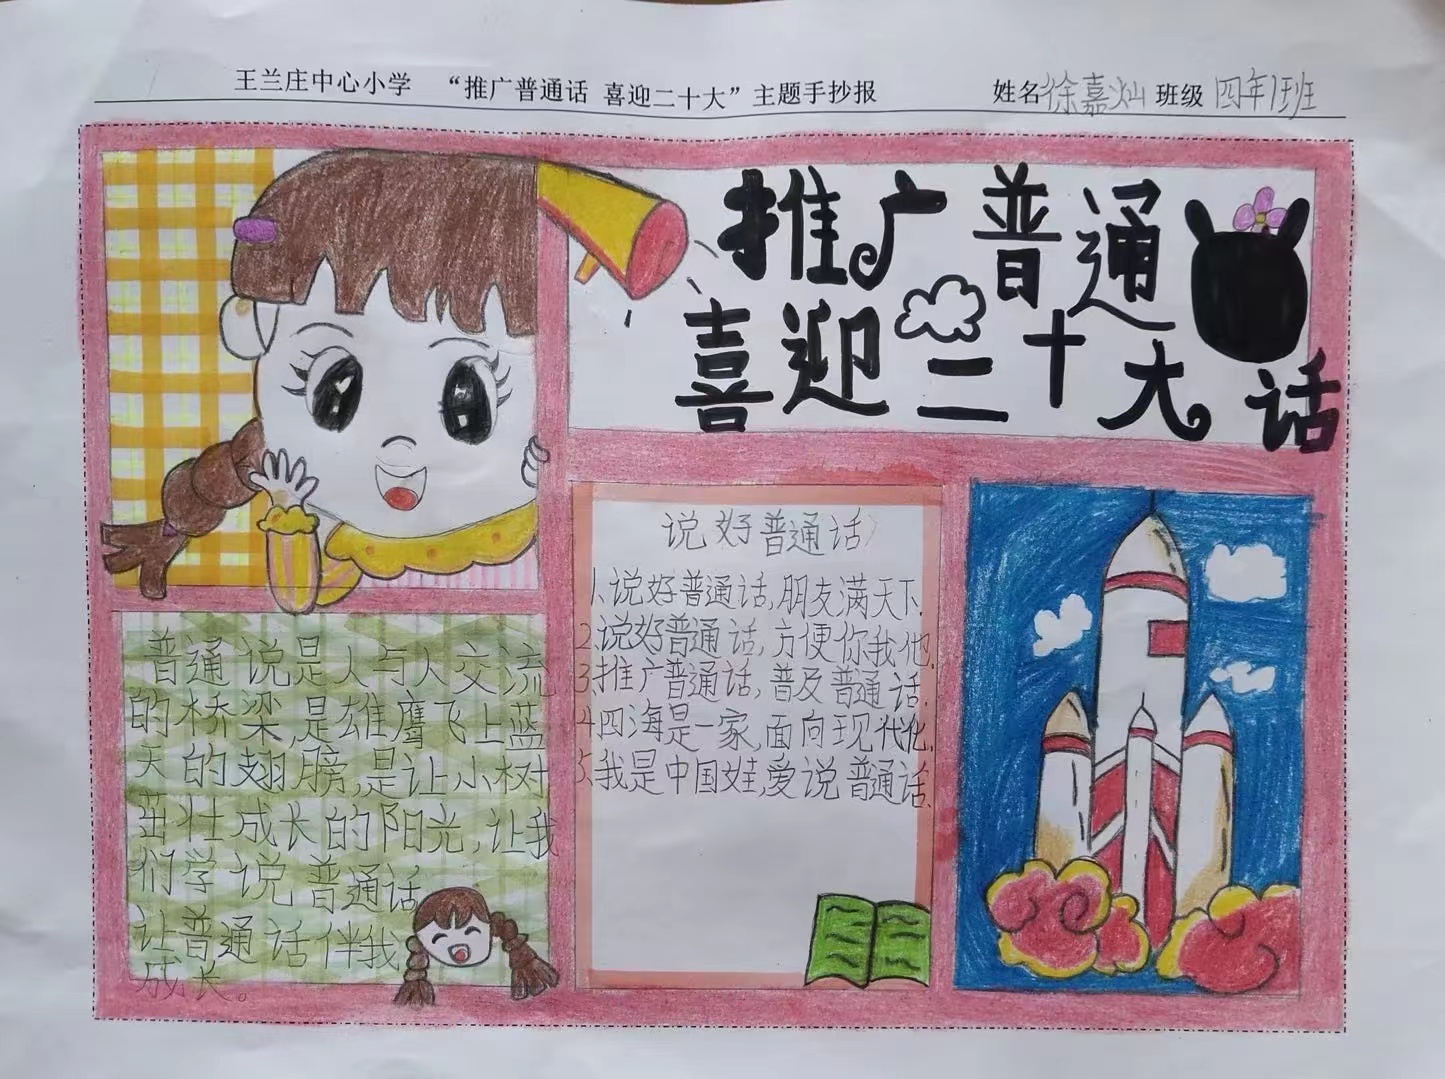 王兰庄中心小学 “推广普通话 喜迎二十大”主题手抄报 姓名徐嘉灿 班级四年1班
推广普通话
喜迎二十大
说好普通话
1.说好普通话,朋友满天下.
2.说好普通话,方便你我他.
3.推广普通话,普及普通话.
4.四海是一家,面向现代化.
5.我是中国娃,爱说普通话.
普通说是人与人交流
的桥梁,是雄鹰飞上蓝
天的翅膀,是让小树
茁壮成长的阳光,让我
们学说普通话
让普通话伴我
成长。